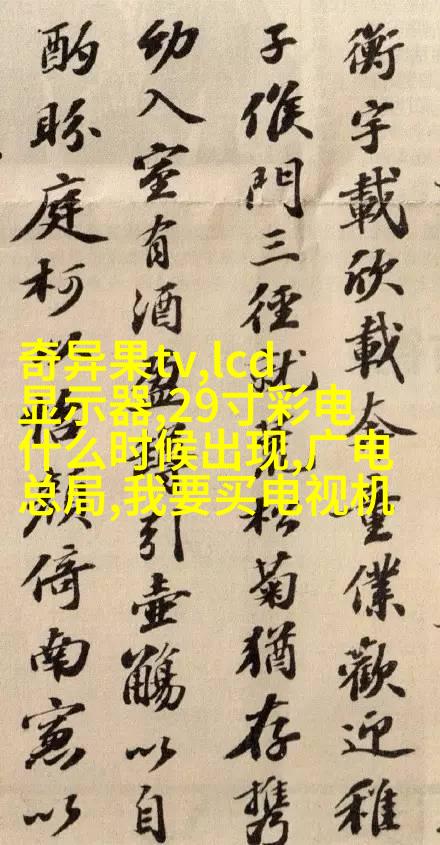 衡宇載欣載奔童僕歡迎稚
子候門三徑就荒松菊猶存携
幼入室有酒盈樽引壺觴以自
酌眄庭柯以怡顏倚南窓以
奇异果tv,lcd
显示器,29寸彩电
什么时候出现,广电
总局,我要买电视机